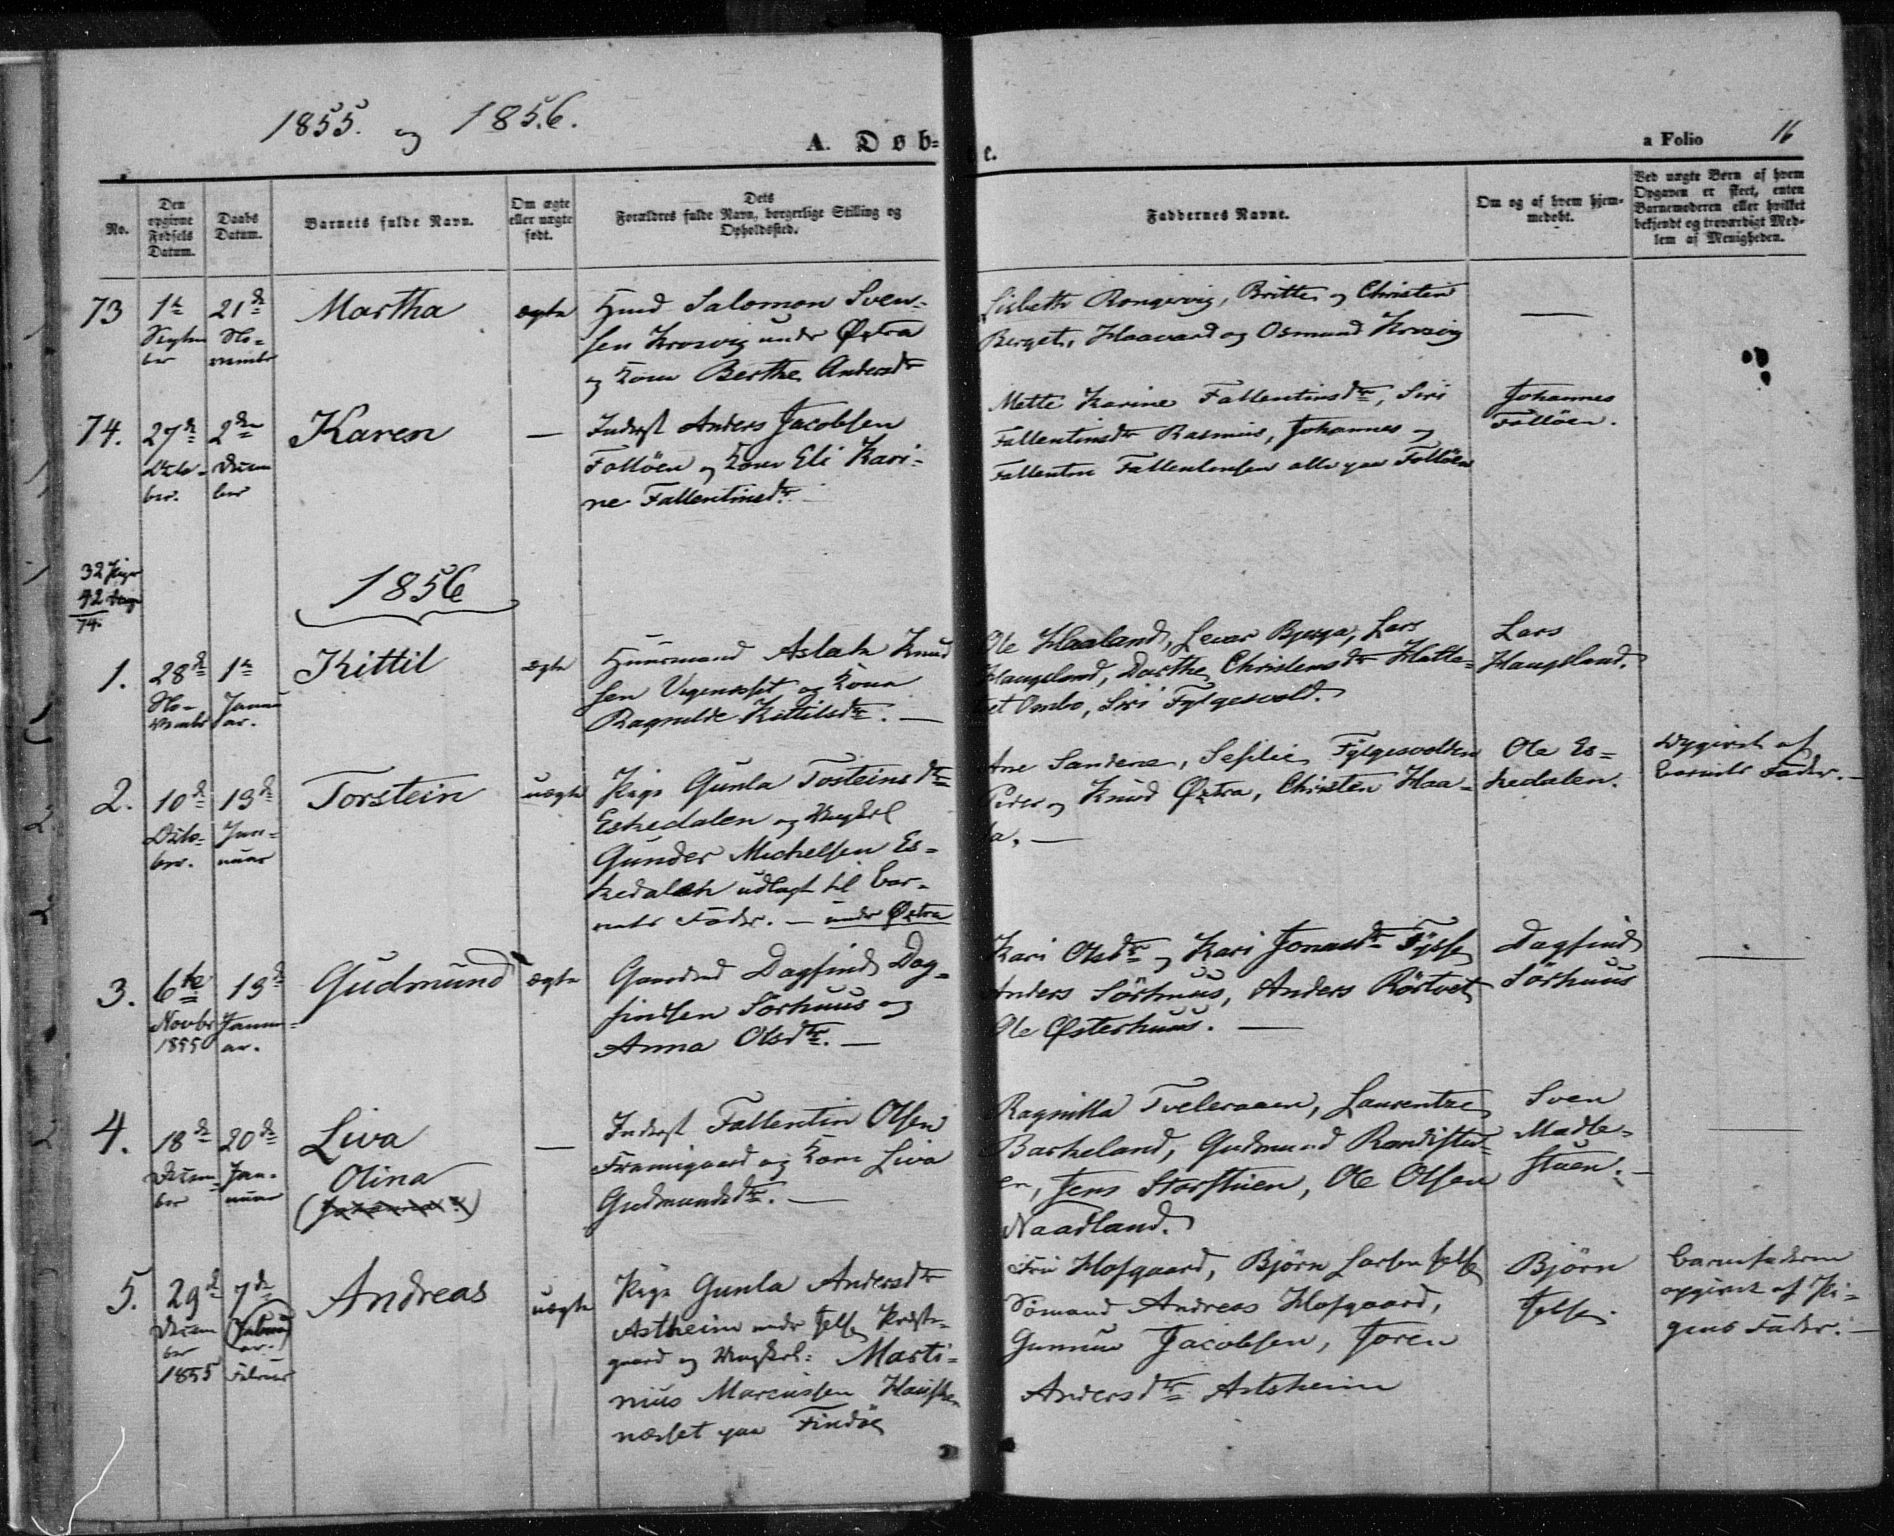 1855. og 1856.
A. Døb-
e.
a Folio 16
No.
Den opgivne Fødsels Datum.
Daabs Datum.
Barnets fulde Navn.
Om ægte eller uægte født.
Dets Forældres fulde Navn, borgerlige Stilling og Opholdssted.
Faddernes Navne.
Om og af hvem hjemmedøbt.
Ved uægte Børn af hvem Opgaven er skeet, enten Barnemoderen eller hvilket bekjendt og troværdigt Medlem af Menigheden.
73
21de
No-
vembr
Martha
ægte
Salomon Sven-
sen Krosvig under Østra
og Kone Berthe Andersdtr
Lisbeth Rongevig, Britte og Christen
Berget, Haavard og Osmund Krosvig
—
74.
27de
Octo-
ber.
2den
Decem
ber
Karen
—
Inderst Anders Jacobsen
Folløen og Kone Eli Kari-
ne Fallentinsdtr.
Mette Karine Fallentinsdtr, Siri
Fallentinsdtr Rasmus, Johannes og
Fallentin Fallentinsen alle paa Folløen
Johannes
Folløen.
32 Piger
42
74.
1856
1.
28de
No-
vembr
1te
Janu
ar.
Kittil
ægte
Huusmand Aslak Knud
sen og Kone
Ragnilde Kittilsdtr. —
Ole Haaland, Lars
Haugland, Dorthe Christensdtr
Ombo, Siri Fylgesvold.
Lars
Haugland.
2.
10de
Octo-
ber.
13de
Jan-
uar
Torstein
uægte
Pige Gunla Tosteinsdtr
Eskedalen og Ungkrl
Gunder Michelsen Es-
kedalen udlagt til Bar-
nets Fader. — under Østra
Ane Sandene, Sesilie Fylgesvolden
Peder og Knud Østra, Christen Haa-
la. —
Ole Es-
kedalen.
Opgivet af
Barnets Fader. —
3.
6te
Novbr
1855
13de
Janu-
ar.
Gudmund
ægte
Gaardmd Dagfind Dag-
findsen Sørhuus og
Anna Olsdtr. —
Kari Olsdtr og Kari Jonasdtr
Anders Sørhuus, Anders Rörtvet
Ole Østerhuus. —
Dagfind
Sörhuus
—
4.
18de
Decem-
ber
20de
Jan-
nuar
Liva
Olina
—
Inderst Fallentin Olsen
Framigaard og Kone Liva
Gudmundsdtr. —
Ragnilla Tveteraaen, Laurentze
Barkeland, Gudmund
en, Jens Storstuen, Ole Olsen
Naadland.
Sven
Madle-
stuen. —
—
5.
29de
Decem
ber
1855
7de
(Januar.)
Februar
Andreas
uægte
Pige Gunla Andersdtr
Astheim under Jelse Præste-
gaard og Ungkrl: Marti-
nius Marcussen Hauske-
næsset paa Findöe
Hofgaard, Björn Larsen Jelse
Sømand Andreas Hofgaard,
Jacobsen, Joren
Andersdtr Astheim
Björn
Jelse.
barnefaderen
opgivet af Pi-
gens Fader. —